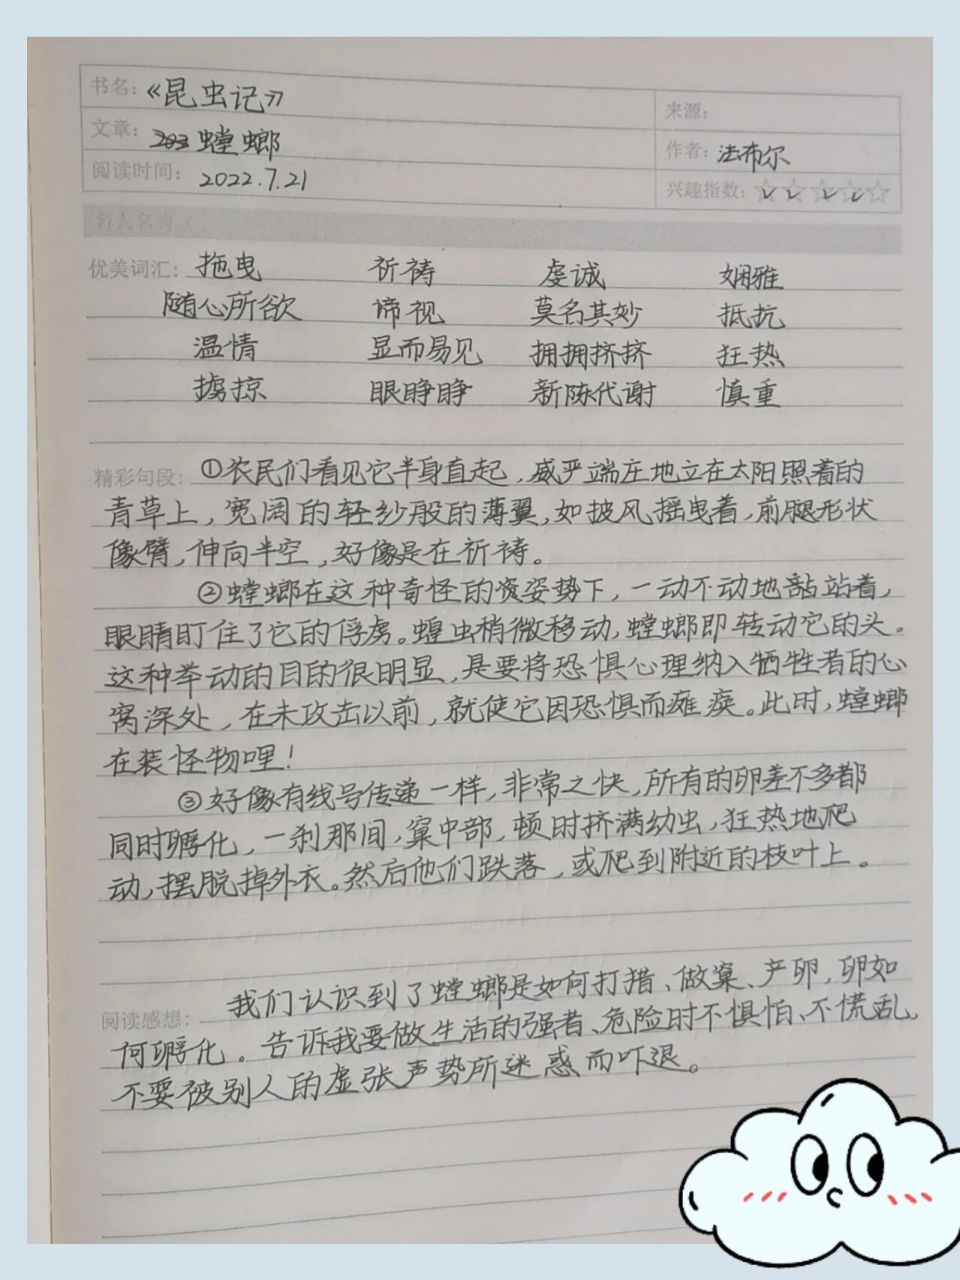 书名：《昆虫记》
来源：
文章：螳螂
作者：法布尔
阅读时间：2022.7.21
兴趣指数：
名人名言
优美词汇：拖曳 祈祷 虔诚 娴雅
随心所欲 谛视 莫名其妙 抵抗
温情 显而易见 拥拥挤挤 狂热
掳掠 眼睁睁 新陈代谢 慎重
精彩句段：①农民们看见它半身直起，威严端庄地立在太阳照着的
青草上，宽阔的轻纱般的薄翼，如披风摇曳着，前腿形状
像臂，伸向半空，好像是在祈祷。
②螳螂在这种奇怪的资姿势下，一动不动地站着，
眼睛盯住了它的俘虏。蝗虫稍微移动，螳螂即转动它的头。
这种举动的目的很明显，是要将恐惧心理纳入牺牲者的心
窝深处，在未攻击以前，就使它因恐惧而瘫痪。此时，螳螂
在装怪物哩！
③好像有线号传递一样，非常之快，所有的卵差不多都
同时孵化，一刹那间，窠中部，顿时挤满幼虫，狂热地爬
动，摆脱掉外衣。然后他们跌落，或爬到附近的枝叶上。
阅读感想：我们认识到了螳螂是如何打措、做窠、产卵，卵如
何孵化。告诉我要做生活的强者、危险时不惧怕、不慌乱，
不要被别人的虚张声势所迷惑而吓退。